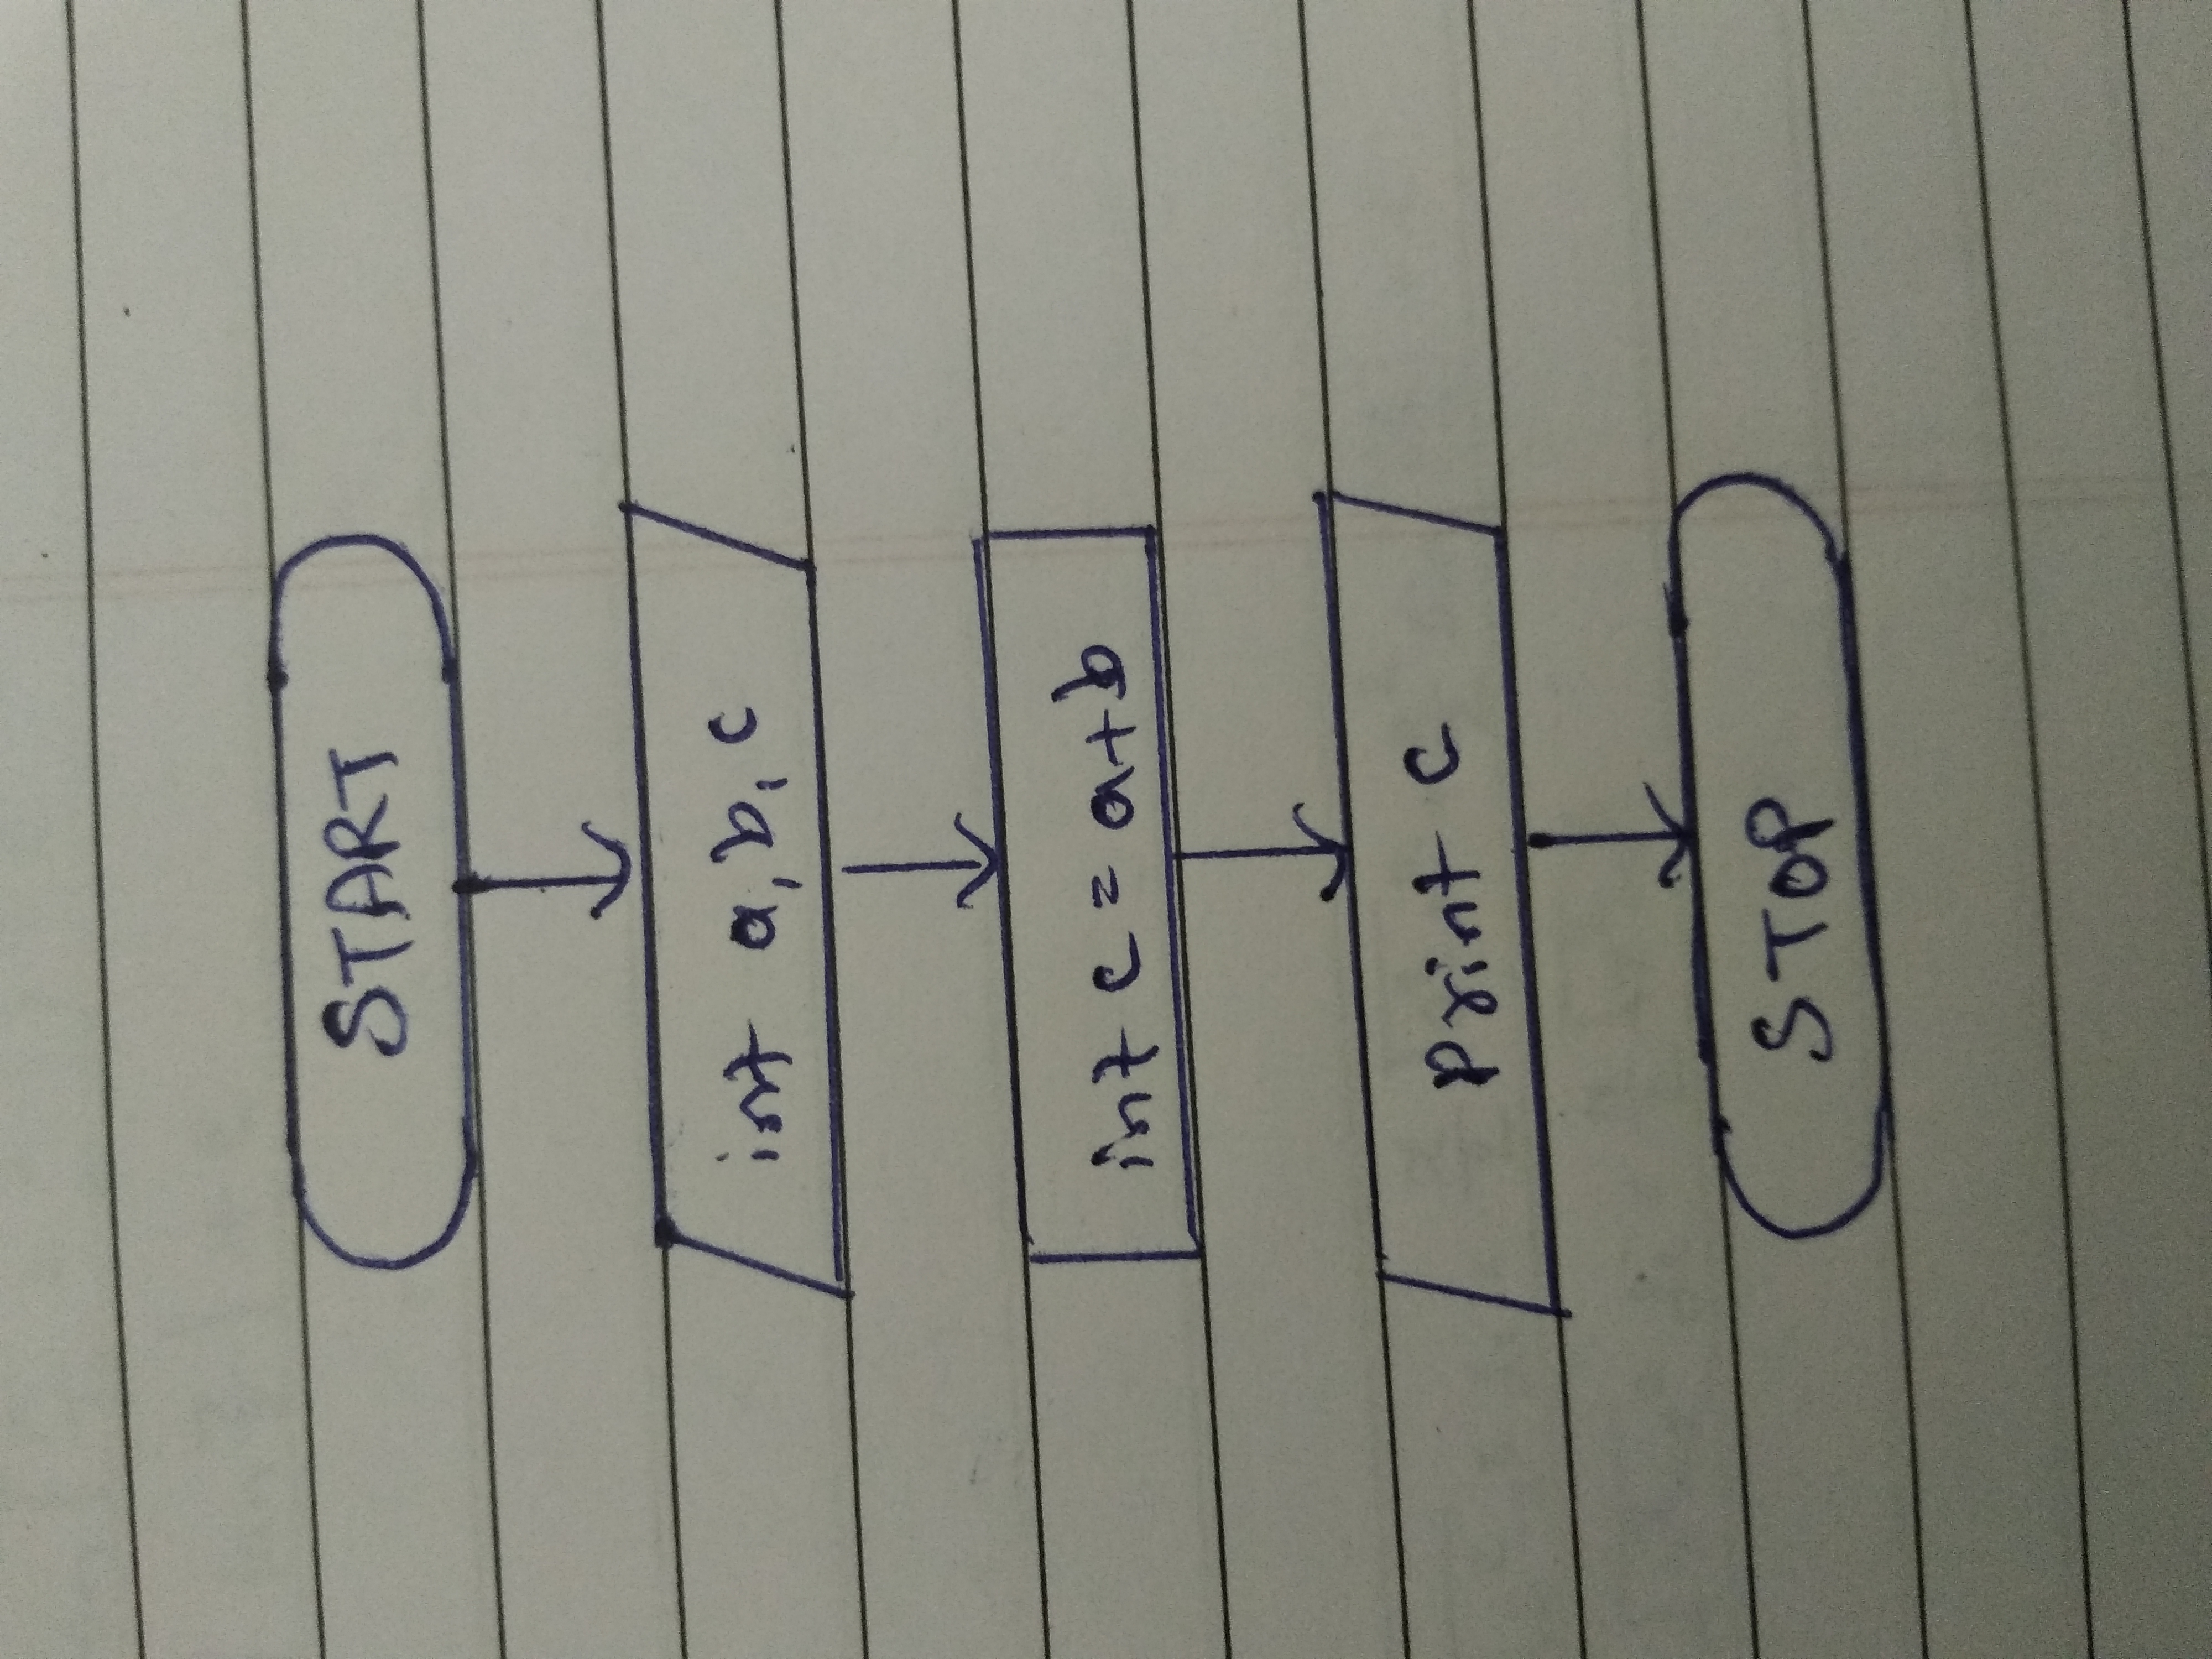 START
int a, b, c
int c = a+b
print c
STOP